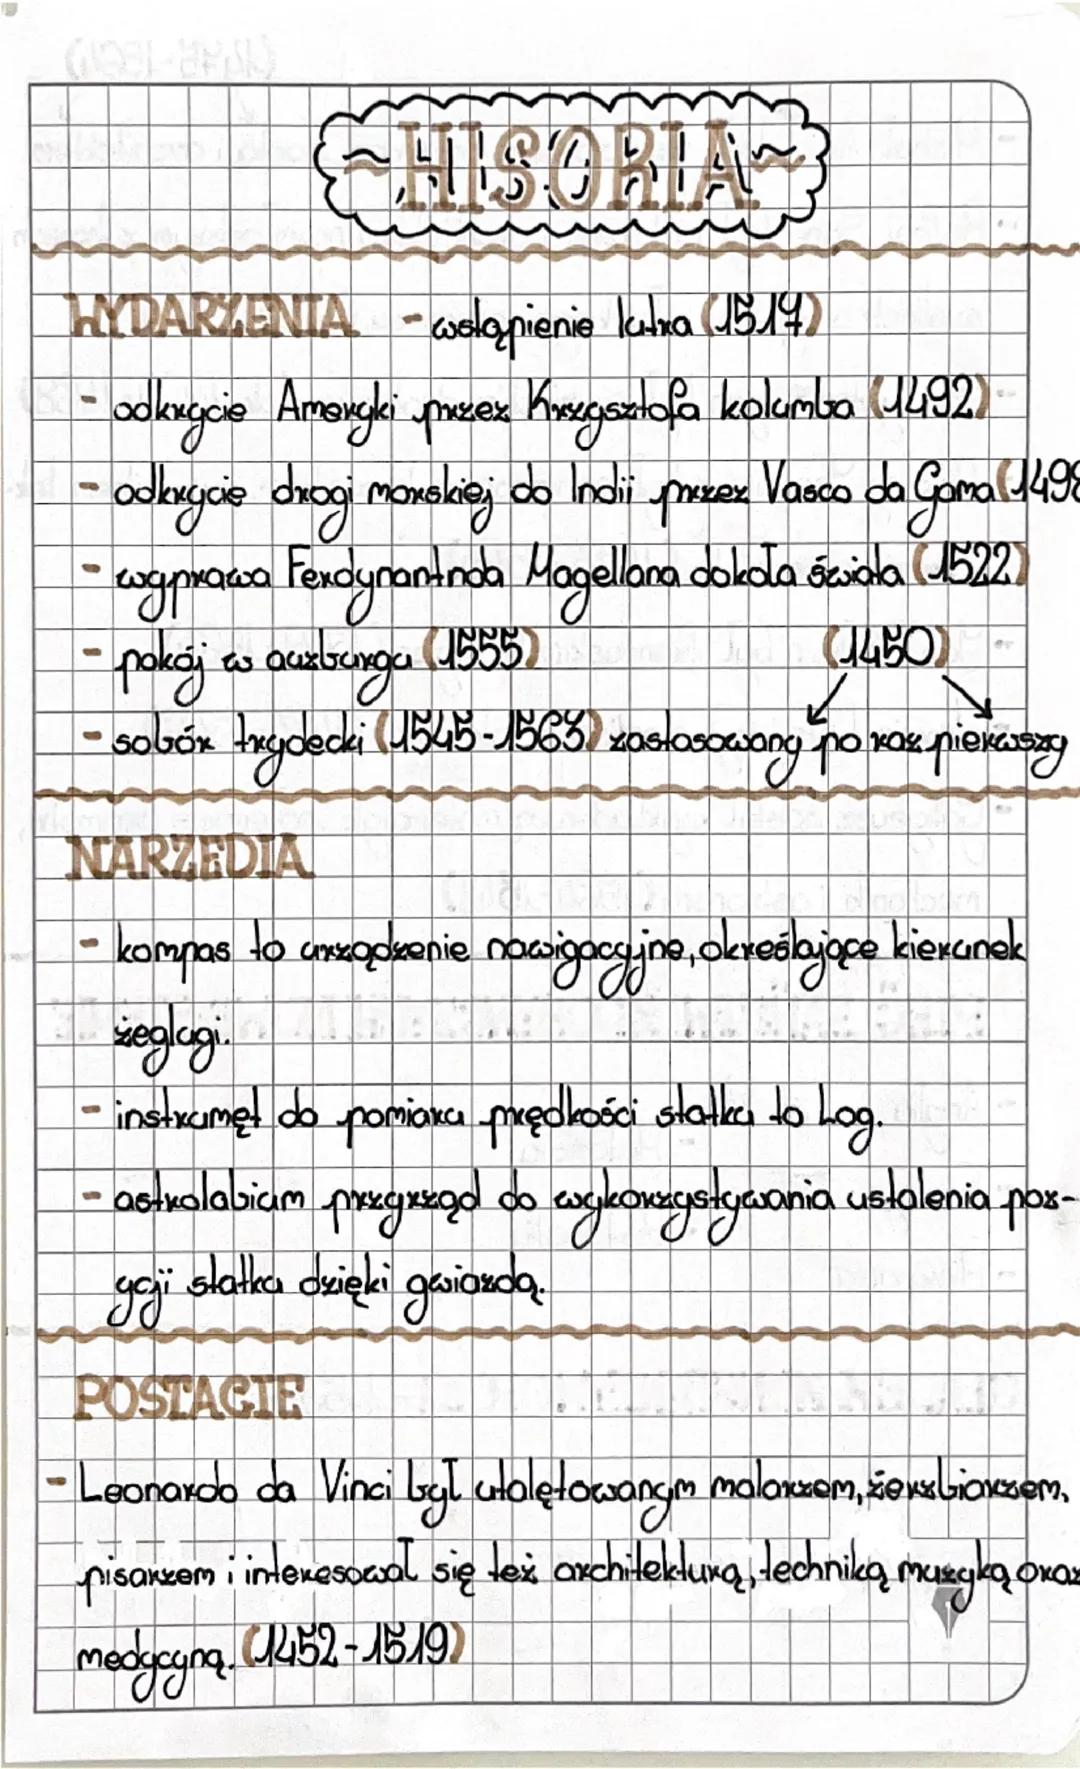 ~HISORIA~
WYDARZENIA - wstąpienie lutra (1517)
- odkrycie Ameryki przez Krzysztofa kolumba (1492)
- odkrycie drogi morskiej do Indii przez Vasco da Gama (1498
- wyprawa Ferdynantnda Magellana dokoła świata (1522)
- pokój w auxburgu (1555) (1450)
- sobór trydecki (1545-1563) zastosowany po raz pierwszy
NARZEDIA
- kompas to urządzenie nawigacyjne, określające kierunek
żeglugi.
- instrumęt do pomiaru prędkości statku to Log.
- astrolabium przyrząd do wykorzystywania ustalenia poz-
ycji statku dzięki gwiazdą.
POSTACIE
- Leonardo da Vinci był utalętowanym malarzem, żerzbiarzem,
pisarzem i interesował się też architekturą, techniką muzyką oraz
medycyną. (1452-1519)